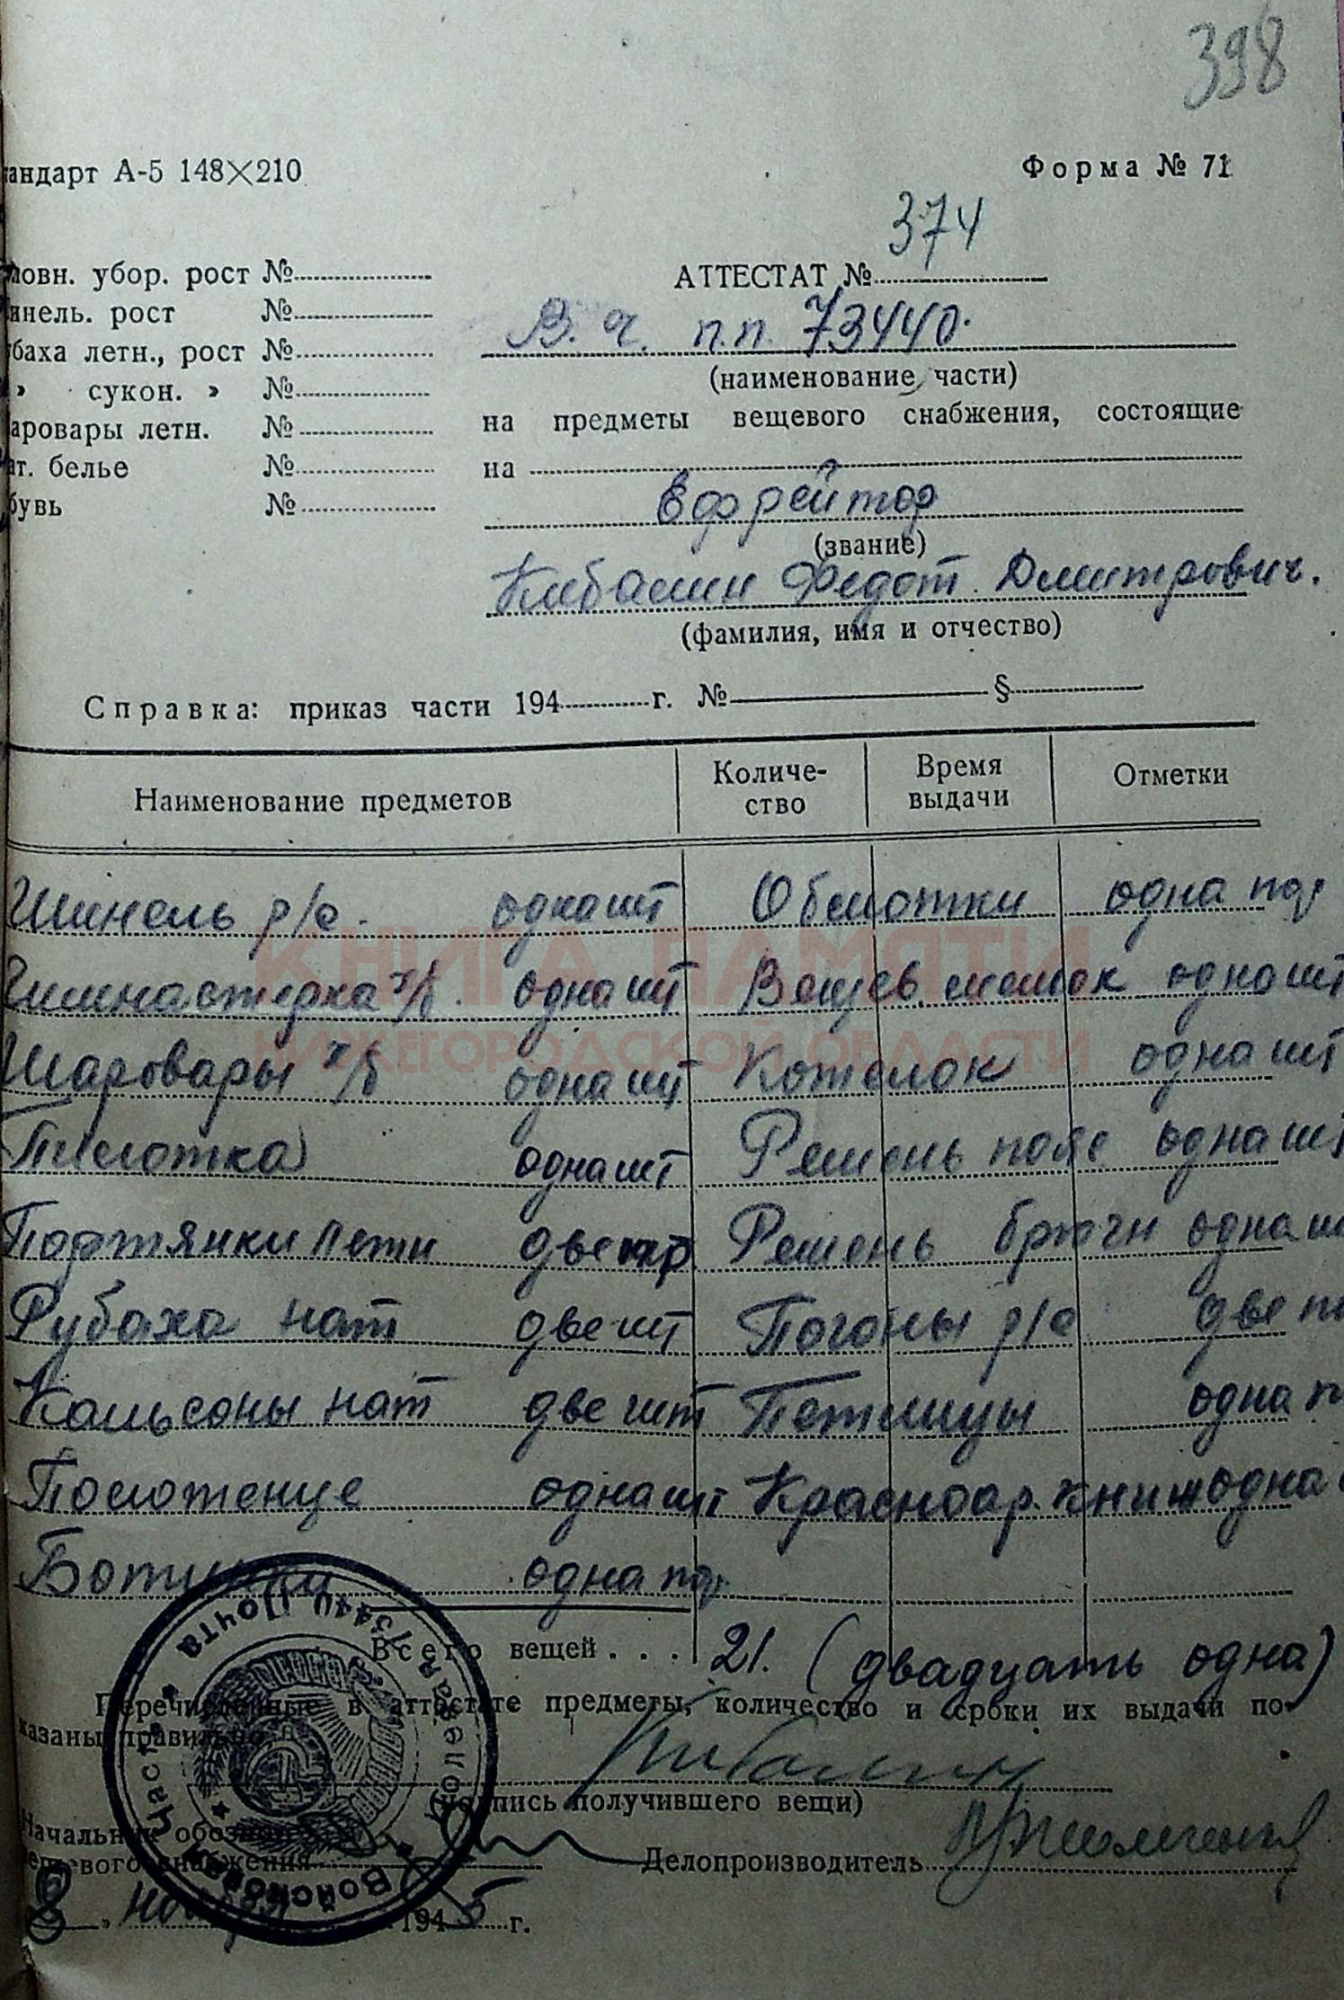 398
тандарт А-5 148×210
Форма № 71
ловн. убор. рост №
АТТЕСТАТ № 374
инель. рост №
В. ч. п.п. 73440.
баха летн., рост №
(наименование части)
» сукон. » №
на предметы вещевого снабжения, состоящие
аровары летн. №
на
ат. белье №
Ефрейтор
бувь №
(звание)
Кибашин Федот Дмитрович.
(фамилия, имя и отчество)
Справка: приказ части 194 г. № §
Наименование предметов Количество Время выдачи Отметки
Шинель р/с. одна шт Обмотки одна пар
Гимнастерка х/б. одна шт Вещев. мешок одна шт
Шаровары х/б одна шт Котелок одна шт
Пилотка одна шт Ремень пояс одна шт
Портянки летн две пар Ремень брючн одна ш
Рубаха нат две шт Погоны р/с две п
Кальсоны нат две шт Петлицы одна п
Полотенце одна шт Красноар. книж одна
Ботинки одна пар
КНИГА ПАМЯТИ
НИЖЕГОРОДСКОЙ ОБЛАСТИ
Всего вещей . . . 21. (двадцать одна)
Перечисленные в аттестате предметы, количество и сроки их выдачи по-
казаны правильно
(подпись получившего вещи)
Начальник обозно-
вещевого снабжения
Делопроизводитель
8 " ноября 1945 г.
Войсковая Часть Полевая Почта 73440